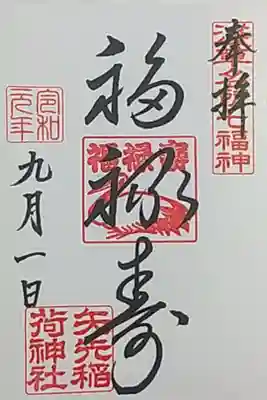 奉拝
浅草名所七福神
福禄寿
福禄壽
令和
元年
九月一日
矢先稲
荷神社